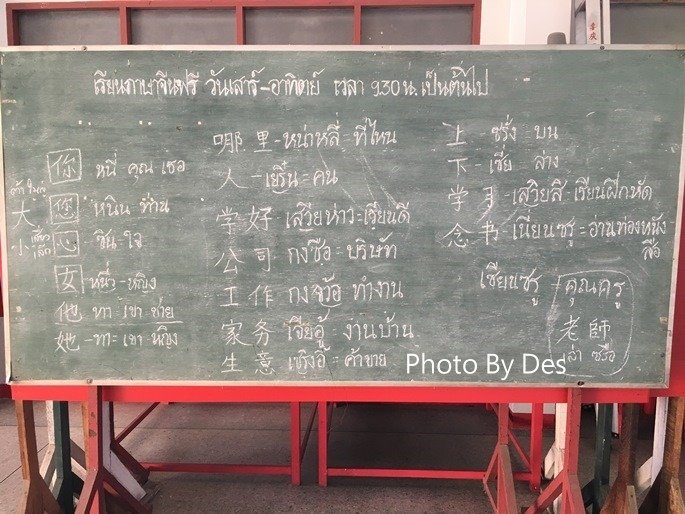 เรียนภาษาจีนฟรี วันเสาร์-อาทิตย์ เวลา 9.30 น. เป็นต้นไป
你 หนี่ คุณ เธอ
大 您 หนิน ท่าน
小 心 ซิน ใจ
女 หนี่ว - หญิง
他 - ทา เขา ชาย
她 - ทา เขา หญิง
哪里 - หน่าหลี่ = ที่ไหน
人 - เยิ๋น = คน
学好 เสวียห่าว = เรียนดี
公司 กงซือ = บริษัท
工作 กงจั้ว ทำงาน
家务 เจียอู้ งานบ้าน
生意 เซิงอี้ = ค้าขาย
上 - ซรั่ง = บน
下 - เซี่ย - ล่าง
学习 - เสวียสี - เรียนฝึกหัด
念书 - เนี่ยนซรู = อ่านท่องหนังสือ
เซียนซรู
คุณครู
老師
ล่า ซรือ
Photo By Des